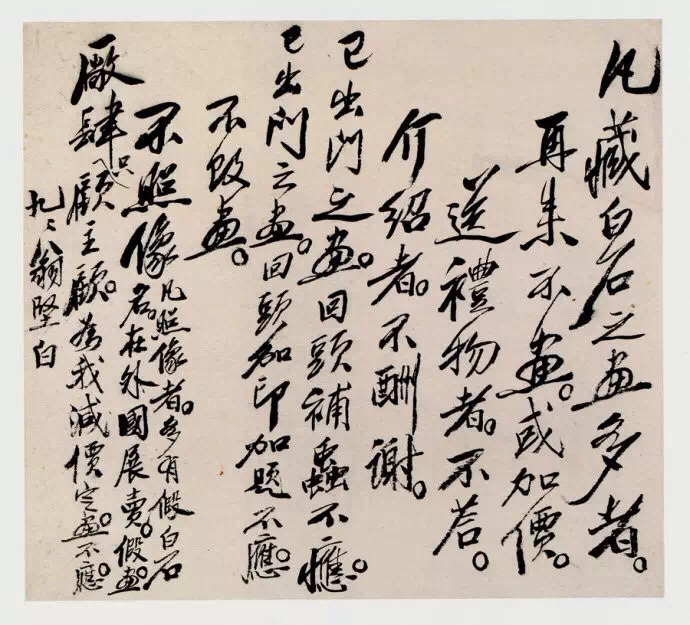 凡藏白石之畫多者。
再來不畫。或加價。
送禮物者。不荅。
介紹者。不酬謝。
已出門之畫。回頭補蟲不應。
已出門之畫。回頭加印加題不應。
不改畫。
不照像凡照像者。多有假白石
名。在外國展賣。假畫。
廠肆只顧主顧。為我減價定畫。不應。
翁堅白